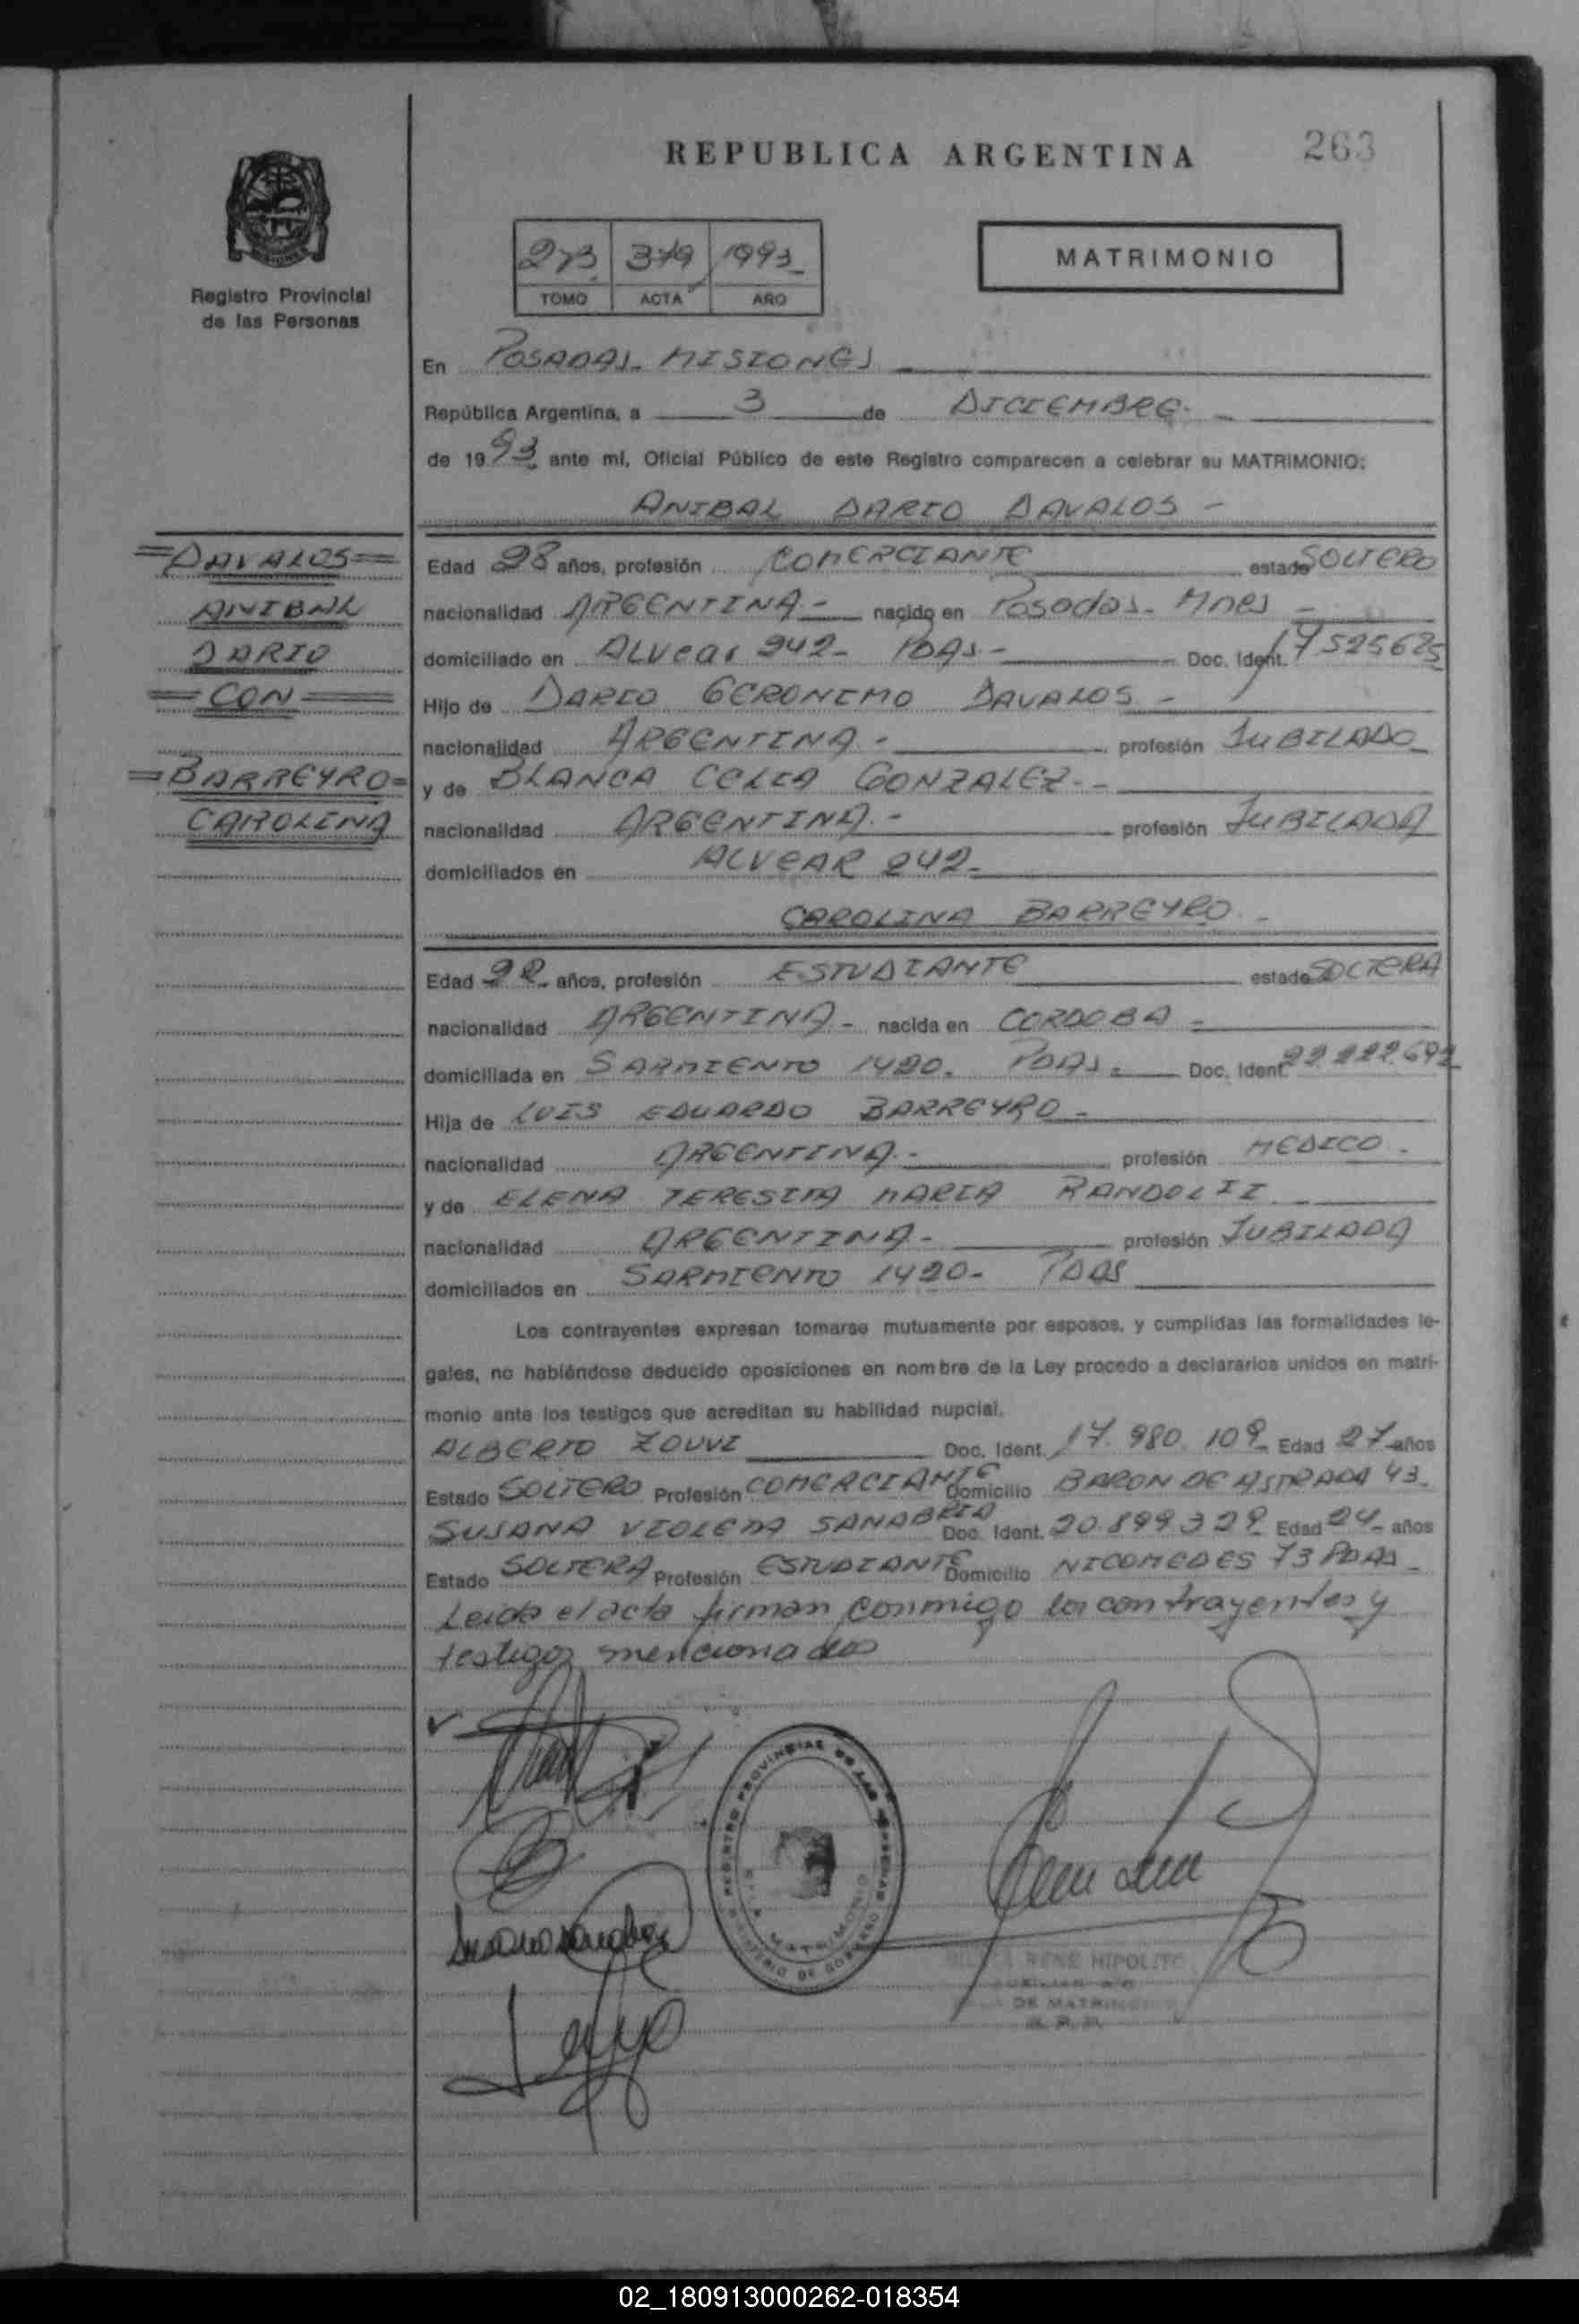 REPUBLICA ARGENTINA 263
Registro Provincial
de las Personas
273 379 1993
TOMO ACTA AÑO
MATRIMONIO
En POSADAS - MISIONES
República Argentina, a 3 de DICIEMBRE.
de 19 93 ante mí, Oficial Público de este Registro comparecen a celebrar su MATRIMONIO:
ANIBAL DARIO DAVALOS -
=DAVALOS=
ANIBAL
DARIO
=CON=
=BARREYRO=
CAROLINA
Edad 28 años, profesión COMERCIANTE estado SOLTERO
nacionalidad ARGENTINA - nacido en Posadas - Mnes -
domiciliado en ALVear 242 - PDAS - Doc. Ident. 17.525625
Hijo de DARIO GERONIMO DAVALOS -
nacionalidad ARGENTINA - profesión JUBILADO
y de BLANCA CELIA GONZALEZ -
nacionalidad ARGENTINA - profesión JUBILADA
domiciliados en ALVEAR 242 -
CAROLINA BARREYRO -
Edad 22 años, profesión ESTUDIANTE estado SOLTERA
nacionalidad ARGENTINA - nacida en CORDOBA -
domiciliada en SARMIENTO 1420. PDAS. Doc. Ident. 22.222.692
Hija de LUIS EDUARDO BARREYRO -
nacionalidad ARGENTINA - profesión MEDICO.
y de ELENA TERESITA MARIA
nacionalidad ARGENTINA - profesión JUBILADA
domiciliados en SARMIENTO 1420 - PDAS
Los contrayentes expresan tomarse mutuamente por esposos, y cumplidas las formalidades le-
gales, no habiéndose deducido oposiciones en nombre de la Ley procedo a declararlos unidos en matri-
monio ante los testigos que acreditan su habilidad nupcial.
ALBERTO ZOUVI Doc. Ident. 17.980.109 Edad 27 años
Estado SOLTERO Profesión COMERCIANTE Domicilio BARON DE ASTRADA 43.
SUSANA VIOLETA SANABRIA Doc. Ident. 20.899.329 Edad 24 años
Estado SOLTERA Profesión ESTUDIANTE Domicilio NICOMEDES 73 PDAS -
Leida el acta firman conmigo los contrayentes y
testigos mencionados
REGISTRO PROVINCIAL DE LAS PERSONAS
MINISTERIO DE GOBIERNO
MATRIMONIO
RENE HIPOLITO
DE MATRIMONIO
02_180913000262-018354